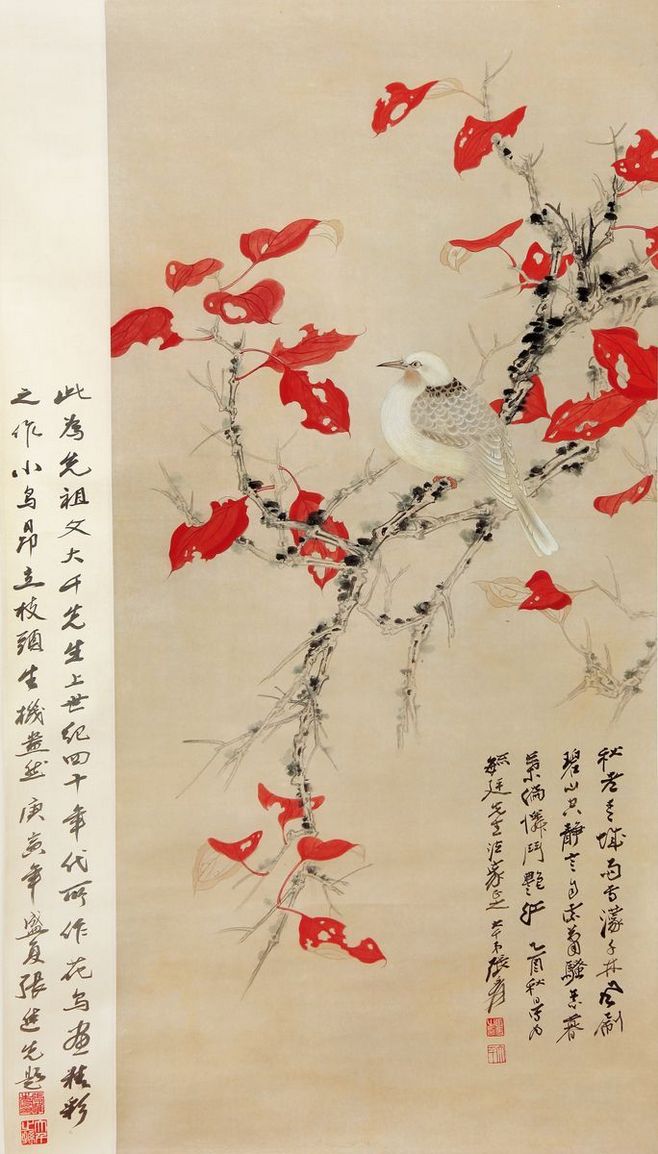 秋老青城雨濛千林風刷
碧山空靜言自蕭騷暮
景偏憐鬥艷紅 乙酉秋日寫為
毓廷先生法家正之 大千弟張爰
此為先祖父大千先生上世紀四十年代所作花鳥畫精彩
之作小鳥昂立枝頭生機盎然 庚寅年盛夏張先題